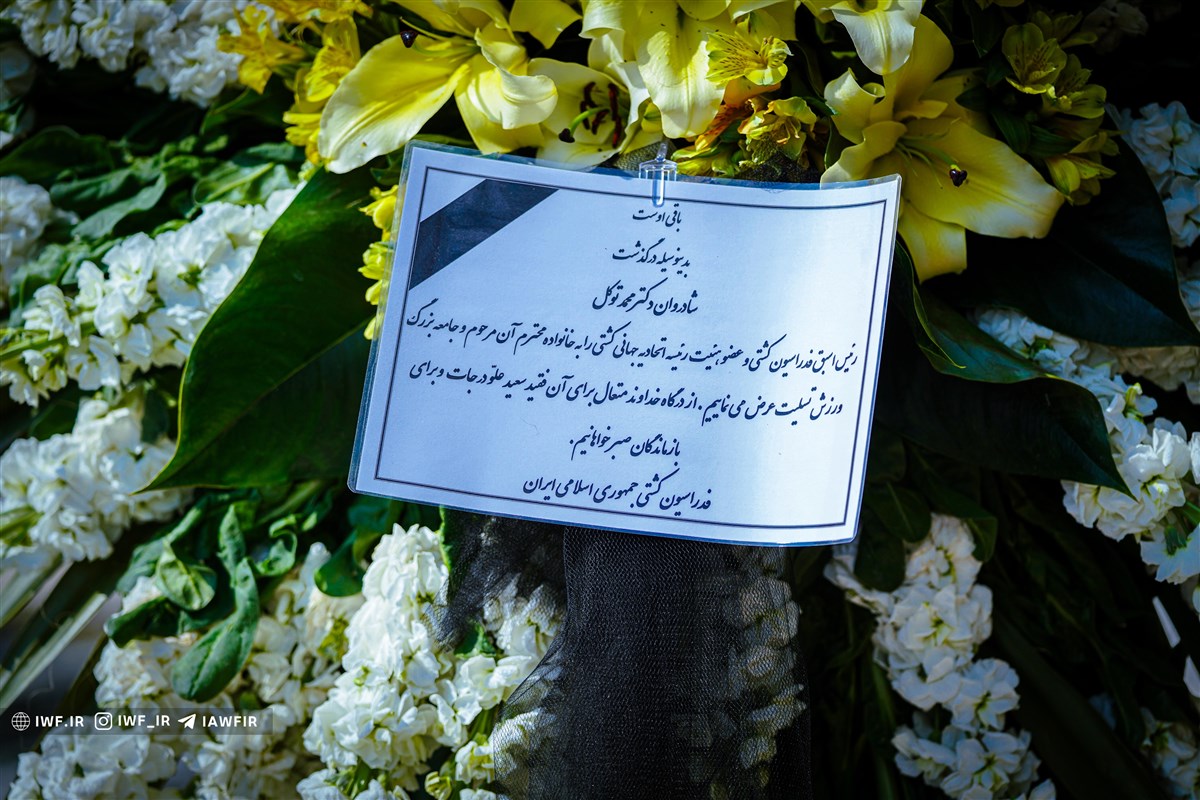 باقی اوست
بدینوسیله درگذشت
شادروان دکتر محمد توکل
رئیس اسبق فدراسیون کشتی و عضو هیئت رئیسه اتحادیه جهانی کشتی را به خانواده محترم آن مرحوم و جامعه بزرگ
ورزش تسلیت عرض می نماییم . از درگاه خداوند متعال برای آن فقید سعید علو درجات و برای
بازماندگان صبر خواهانیم.
فدراسیون کشتی جمهوری اسلامی ایران
IWF.IR IWF_IR IAWFIR